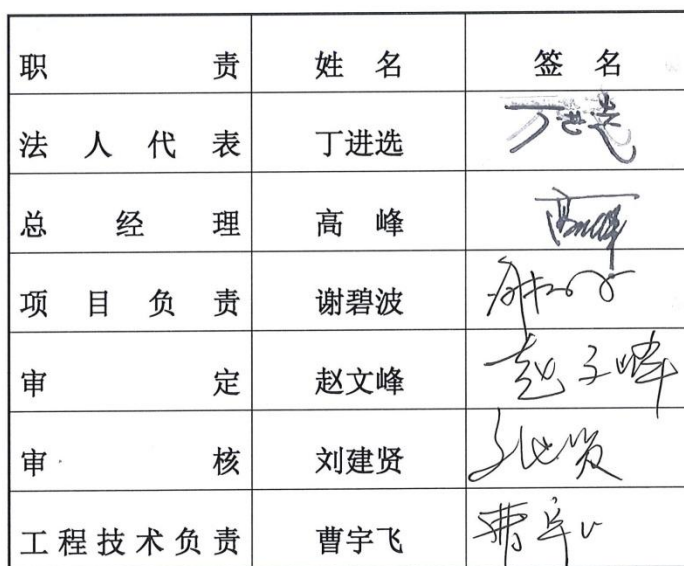 职责 姓名 签名
法人代表 丁进选 丁进选
总经理 高峰
项目负责 谢碧波
审定 赵文峰 赵文峰
审核 刘建贤
工程技术负责 曹宇飞 曹宇飞